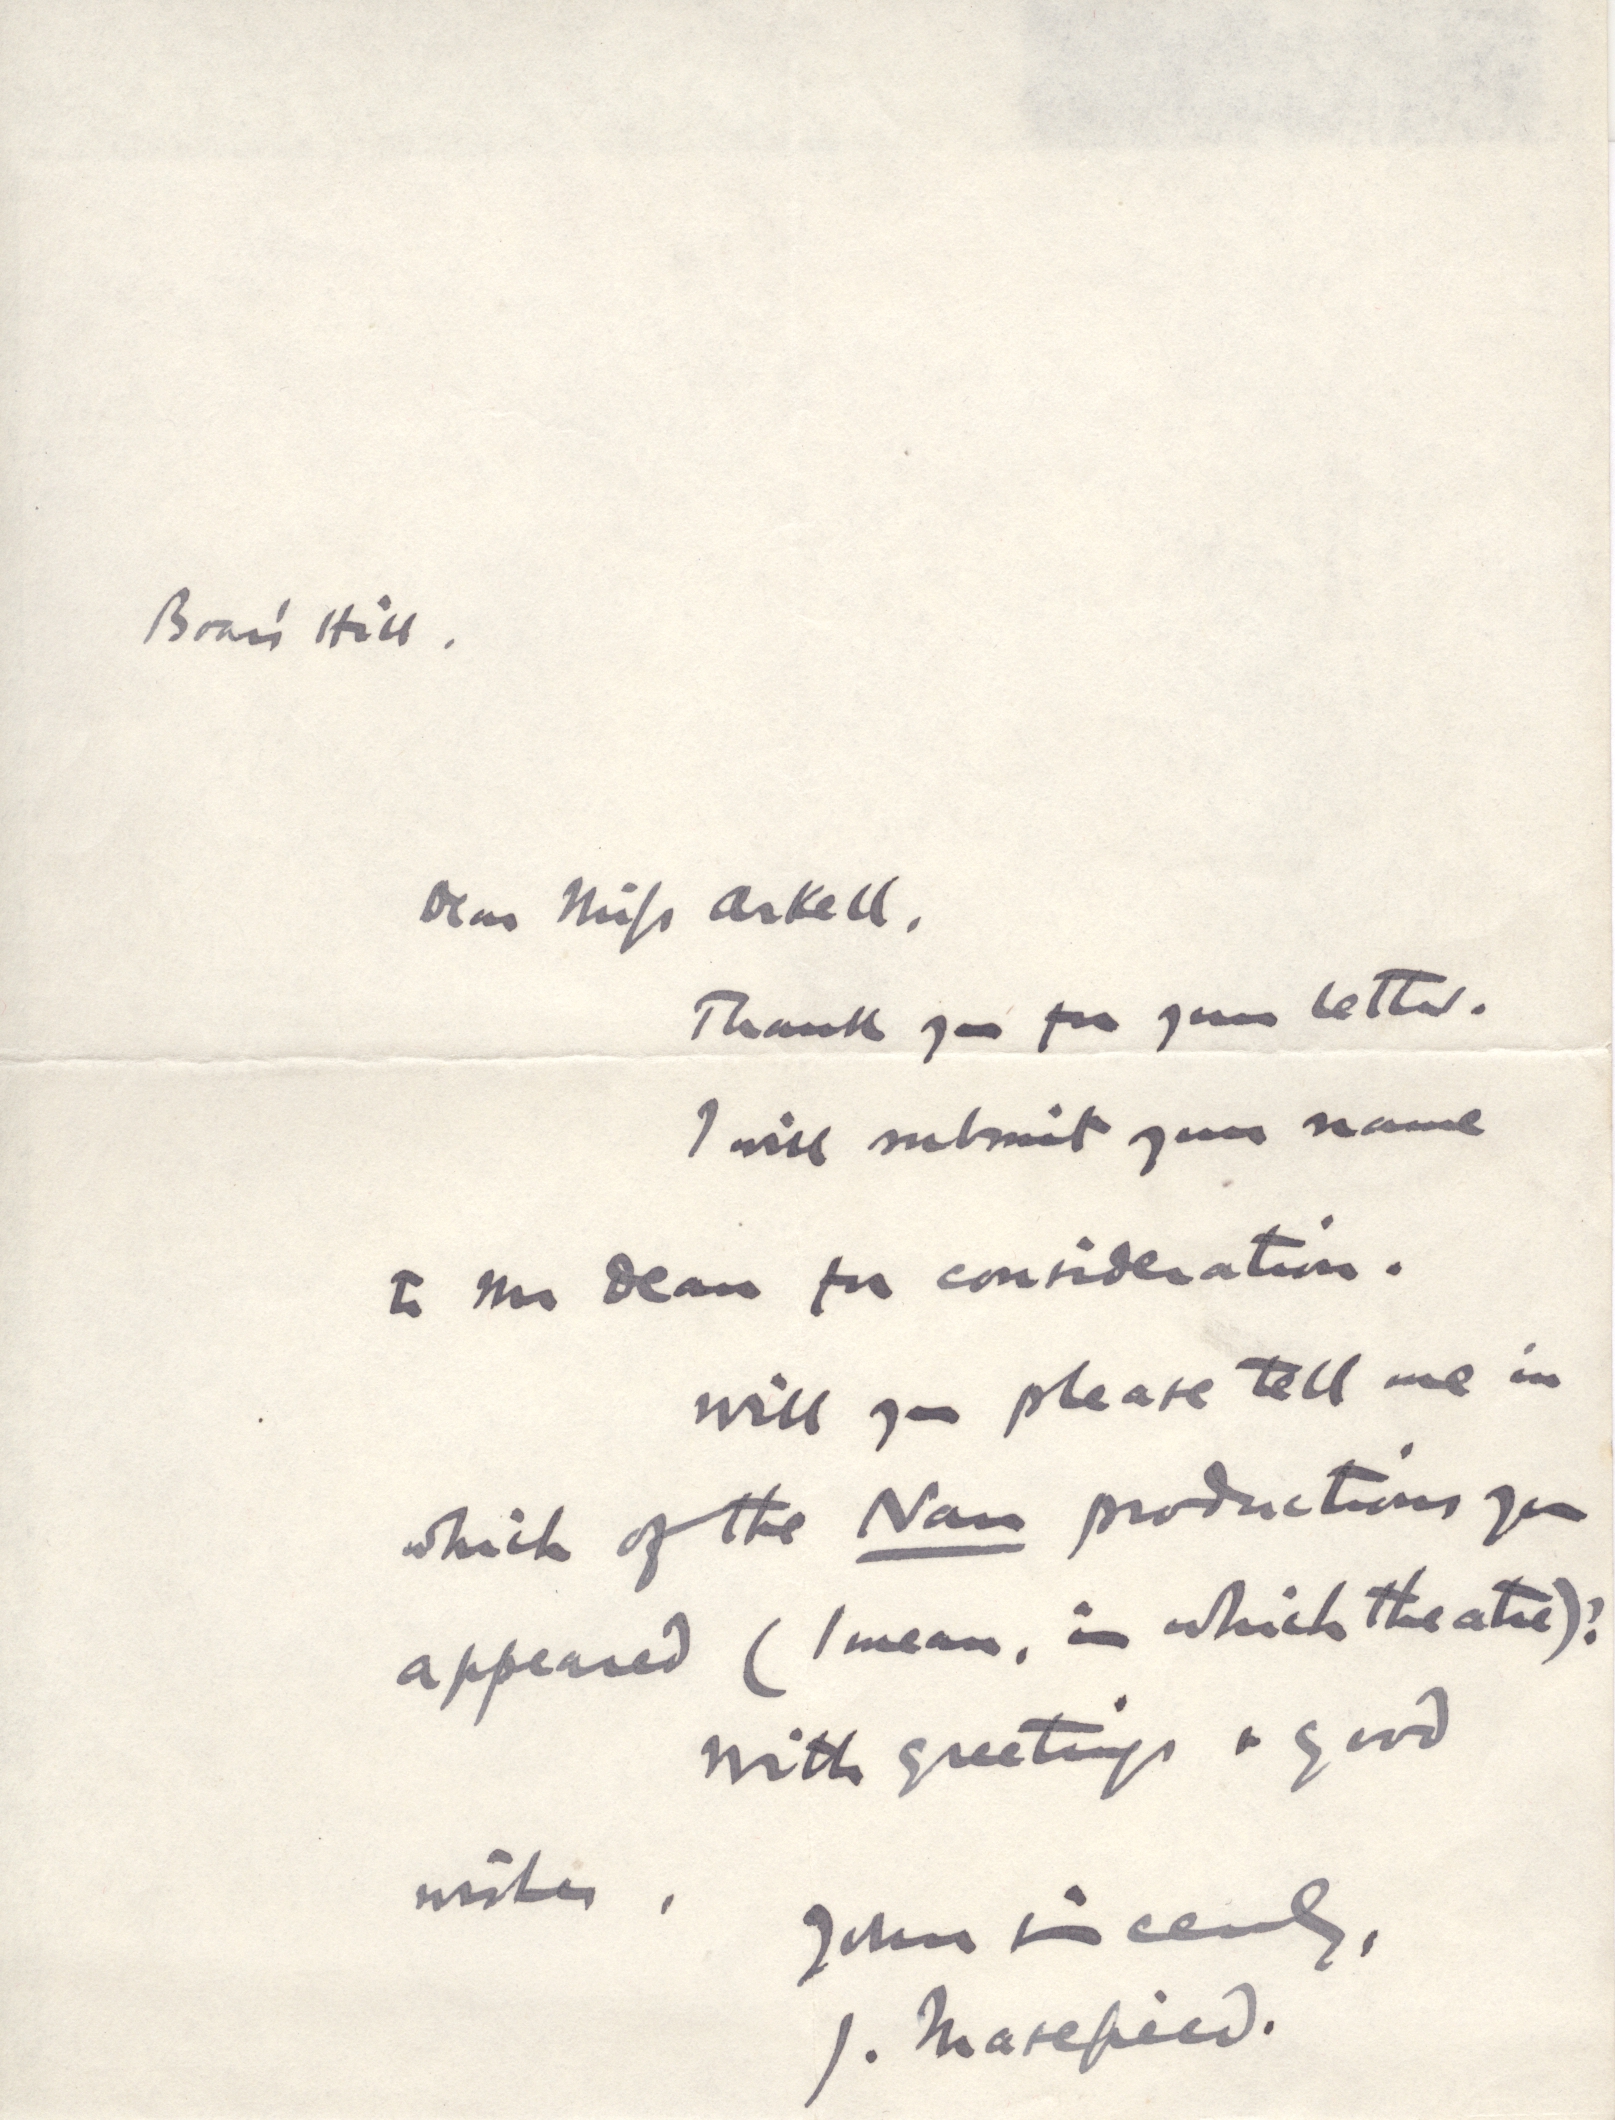 Boar's Hill.
Dear Miss Arkell,
Thank you for your letter.
I will submit your name
to Mr Dean for consideration.
Will you please tell me in
which of the Nan productions you
appeared (I mean, in which theatre)?
With greetings & good
wishes,
Yours sincerely,
J. Masefield.